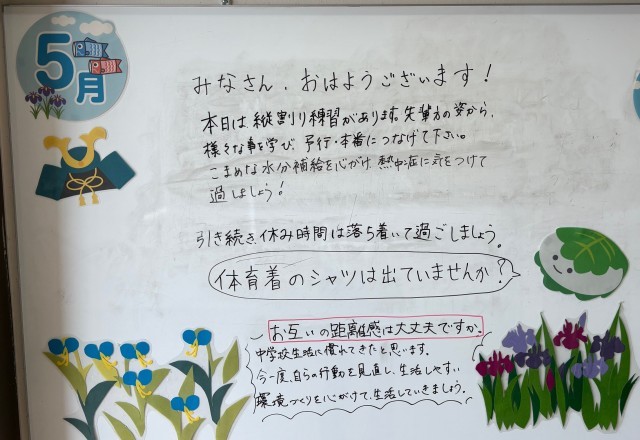 5月
みなさん、おはようございます！
本日は、縦割り練習があります。先輩方の姿から、
様々な事を学び、予行・本番につなげて下さい。
こまめな水分補給を心がけ、熱中症に気をつけて
過しましょう！
引き続き、休み時間は落ち着いて過ごしましょう。
体育着のシャツは出ていませんか？
お互いの距離感は大丈夫ですか。
中学校生活に慣れてきたと思います。
今一度、自らの行動を見直し、生活しやすい
環境づくりを心がけて、生活していきましょう。